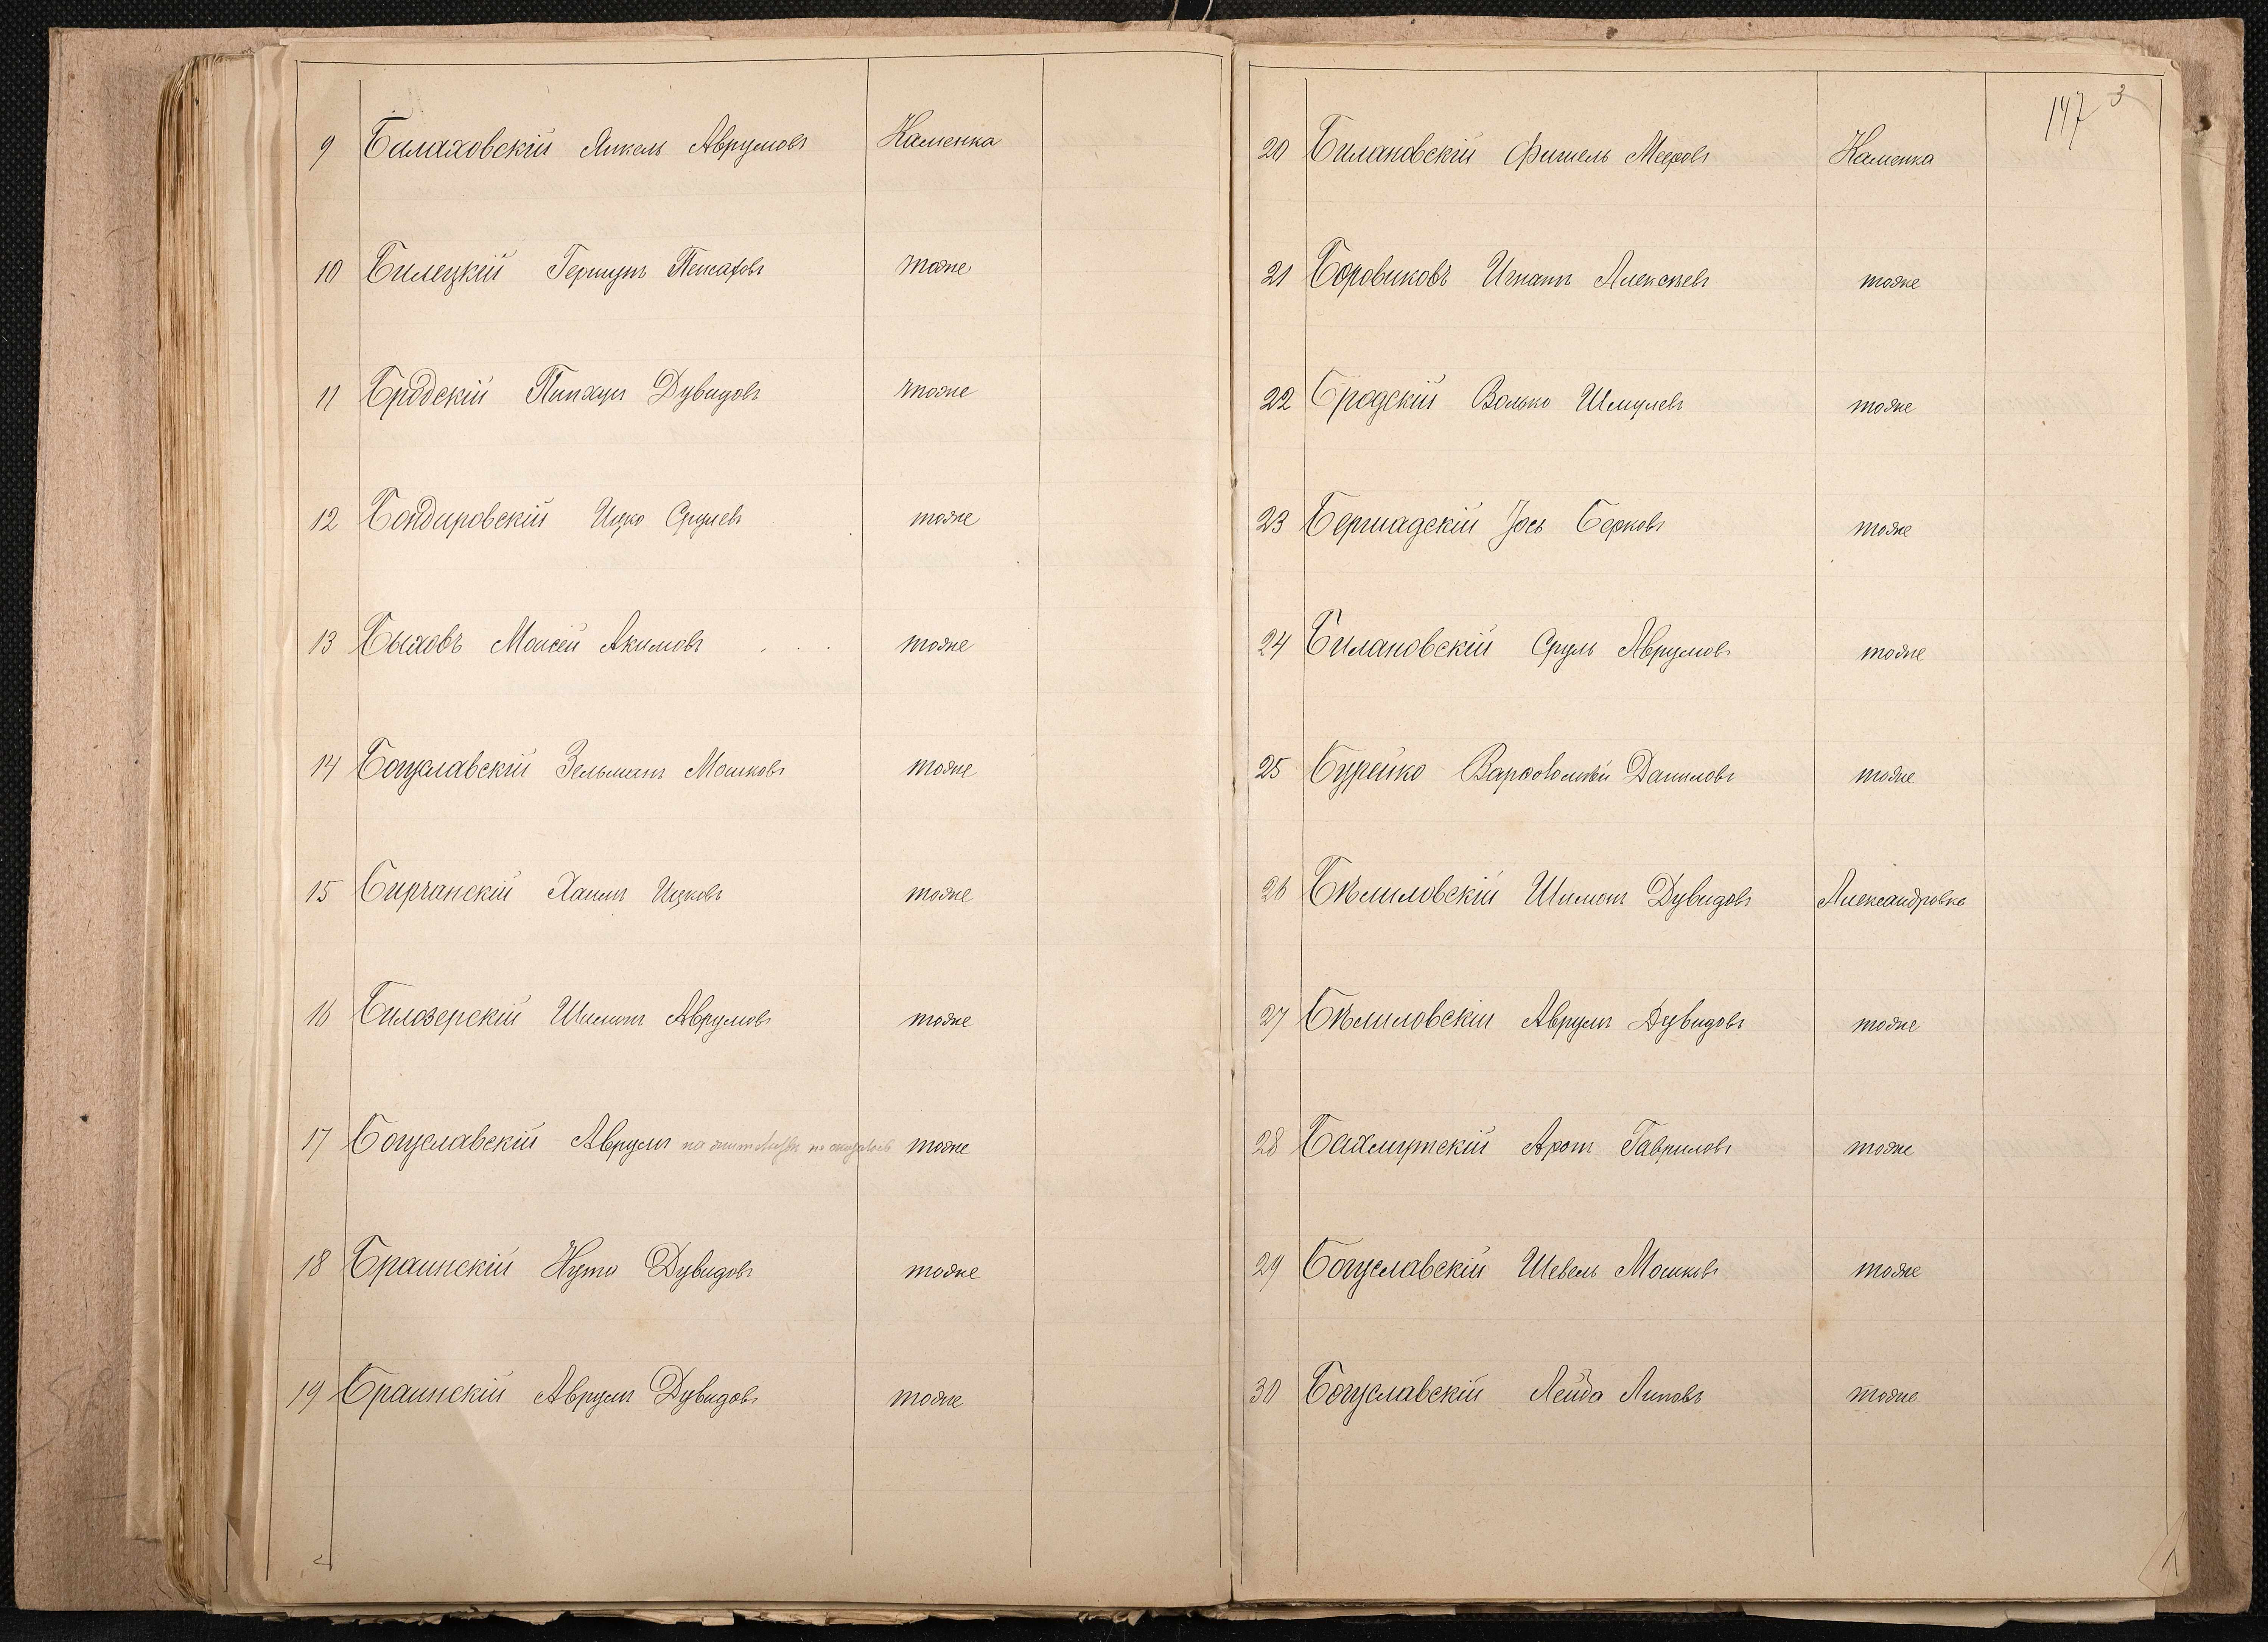 9 Балаховскій Янкель Аврумовъ Каменка
10 Билецкій Гершунъ Пейсаховъ тоже
11 Бродскій Пинхусъ Дувидовъ тоже
12 Бондаровскій Ицко Срулевъ тоже
13 Быховъ Моисей Акимовъ тоже
14 Богуславскій Зельманъ Мошковъ тоже
15 Бирчанскій Хаимъ Ицковъ тоже
16 Билозерскій Шимонъ Аврумовъ тоже
17 Богуславскій Аврумъ не оказалось тоже
18 Браинскій Нута Дувидовъ тоже
19 Браинскій Аврумъ Дувидовъ тоже
147 3
20 Билановскій Фишель Мееровъ Каменка
21 Боровиковъ Игнатъ Алексѣевъ тоже
22 Бродскій Волько Шмулевъ тоже
23 Бершадскій Іось Берковъ тоже
24 Билановскій Сруль Аврумовъ тоже
25 Бурейко Варфоломѣй Даниловъ тоже
26 Бѣлиловскій Шимонъ Дувидовъ Александровка
27 Бѣлиловскій Аврумъ Дувидовъ тоже
28 Бахмутскій Аронъ Гавриловъ тоже
29 Богуславскій Шевель Мошковъ тоже
30 Богуславскій Лейба Липовъ тоже